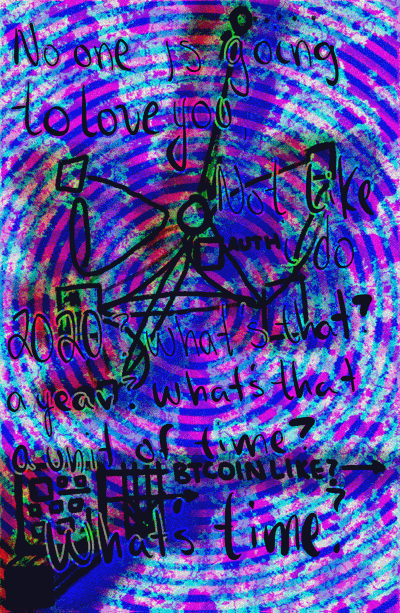 No one is going
to love you
Not like
AUTH
u do
2020? what's that?
a year? what's that
a unit of time?
BTCOIN LIKE?
What's time?